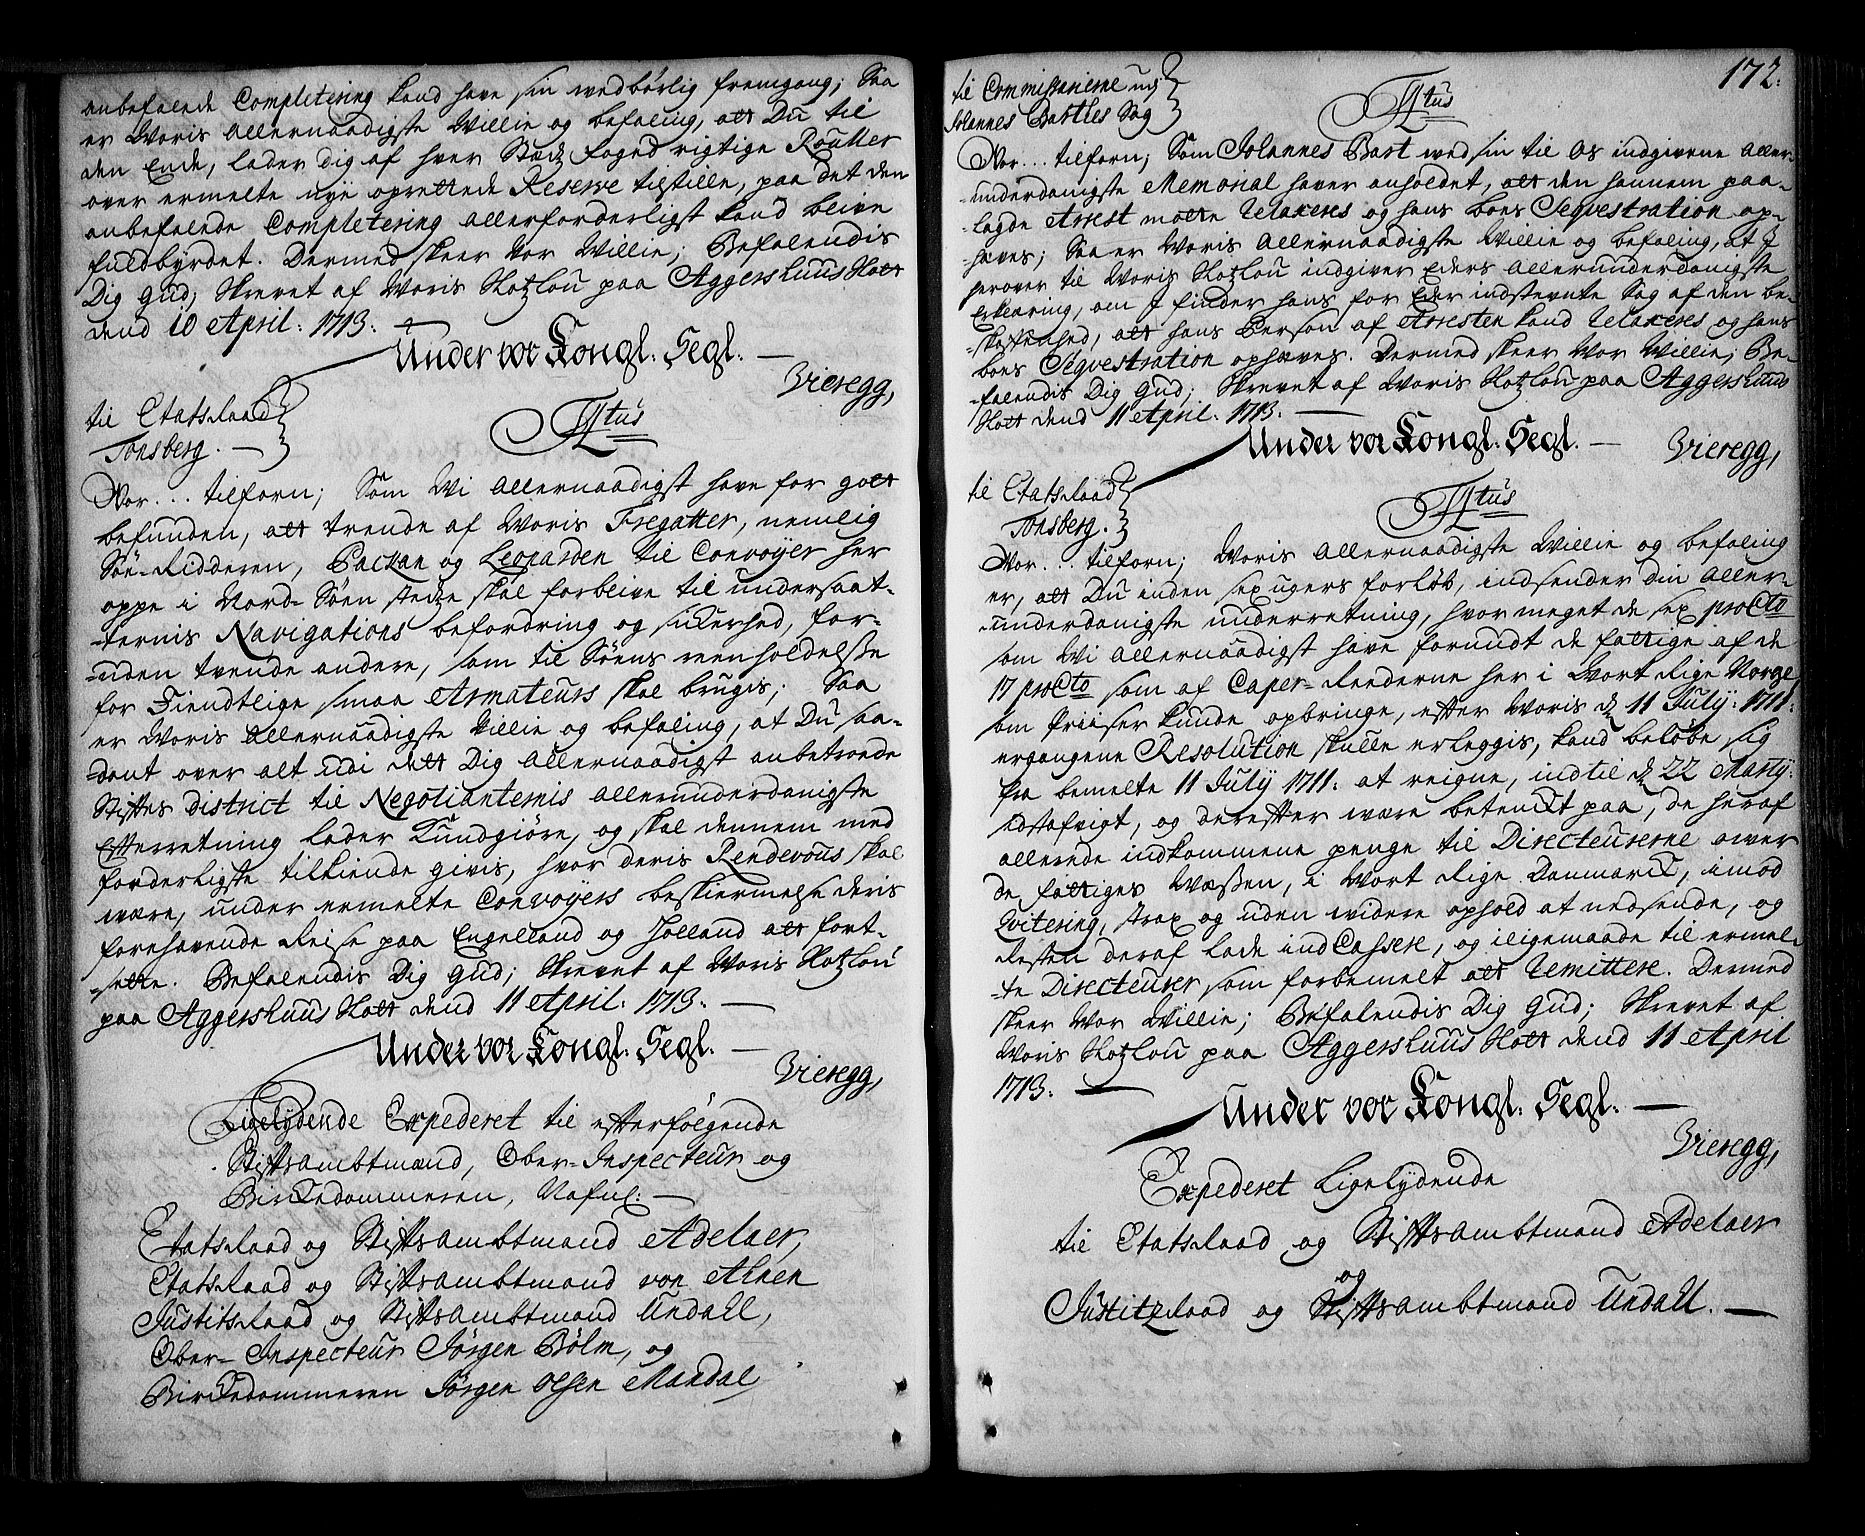 anbefalede Completering kand have sin wedbørlig fremgang; Saa
er Woris allernaadigste Willie og befaling, att Du til
den Ende, lader dig af hver Stædz foged rigtige Rouller
over ermelte nye oprettede Reserve tilstille, paa det den
anbefalede Completering allerforderligst kand blive
fuldbyrdet. Dermed skeer Vor Willie; Befalendis
Dig Gud; Skrevet af Woris Slotzlou paa Aggershuus Slott
dend 10 April: 1713.
Under vor Kongl: Segl.
Vieregg,
til Etatsraad
Tonsberg.
Ftus
Vor... tilforn; Som Wi allernaadigst have for gott
befunden, att trende af Woris Fregatter, nemlig
Søe-Ridderen, Packan og Leoparden til Convoyer her
oppe i Nord-Søen stedze skal forblive til undersaat-
-ternis Navigations befordring og sickerhed, for-
-uden tvende andere, som til Søens reenholdelse
for Fiendtlige smaa Armateurs skal brugis; Saa
er Woris allernaadigste Willie og befaling, at Du saa-
-dant over alt udi dett Dig allernaadigst anbetroede
Stifftes District til Negotianternis allerunderdanigste
Efterretning lader Kundgiøre, og skal dennem med
forderligste tilkiende givis, hvor deris Rendevous skal
være, under ermelte Convoyers beskiermelse deris
forehavende Reise paa Engelland og Holland att fort-
-sette. Befalendis Dig Gud; Skrevet af Woris Slotzlou
paa Aggershuus Slott dend 11 April: 1713.
Under vor Kongl: Segl.
Vieregg,
Ligelydende Expederet til efterfølgende
Stifftsambtmænd, Ober-Inspecteur og
Birckedommeren, Nafnl:
Etatsraad og Stifftsambtmand Adelaer,
Etatsraad og Stifftsambtmand von Ahnen
Justitsraad og Stifftsambtmand Undall,
Ober-Inspecteur Jørgen Bølm, og
Birckedommeren Jørgen Olsen Mandal
172.
til Commissarierne udj
Johannes Barthes Sag
Ftus
Vor... tilforn; Som Johannes Bart wed sin til Os indgivene aller-
-underdanigste Memorial haver anholdet, att den hannem paa-
-lagde Arrest motte Relaxeres og hans boes Seqvestration op-
-hæves; Saa er Woris allernaadigste Willie og befaling, at I
herover til Woris Slotzlou indgiver Eders allerunderdanigste
Erklæring, om I finder hans for Eder indstevnte Sag af den be-
-skaffenhed, att hans Person af Arresten kand Relaxeres og hans
boes Seqvestration ophæves. Dermed skeer Vor Willie; Be-
-falendis Dig Gud; Skrevet af Woris Slotzlou paa Aggershuus
Slott dend 11 April: 1713.
Under vor Kongl: Segl.
Vieregg,
til Etatsraad
Tonsberg.
Ftus
Vor... tilforn; Woris allernaadigste Willie og befaling
er, att Du inden sex ugers forløb, indsender din aller-
-underdanigste underretning, hvor meget de sex proCto
som Wi allernaadigst have forundt de fattige af de
17 proCto som af Caper-Rederne her i Wort Rige Norge,
om Priiser kunde opbringe, efter Woris d 11 July: 1711.
ergangene Resolution skulle erleggis, kand beløbe sig
fra bemelte 11 July 1711. at reigne, indtil d 22 Martij:
idstafvigt, og derefter være betenckt paa, de heraf
allerede indkommene penge til Directeurerne over
de fattiges Wæsen, i Wort Rige Danmarck, imod
Qvitering, strax og uden widere ophold at nedsende, og
Resten deraf lade indCassere, og iligemaade til ermel-
-te Directeurer som forbemelt att Remittere. Dermed
skeer Vor Willie; Befalendis Dig Gud; Skrevet af
Woris Slotzlou paa Aggershuus Slott dend 11 April
1713.
Under vor Kongl: Segl.
Vieregg,
Expederet Ligelydende
til Etatsraad og Stifftsambtmand Adelaer
og
Justitzraad og Stifftsambtmand Undall.